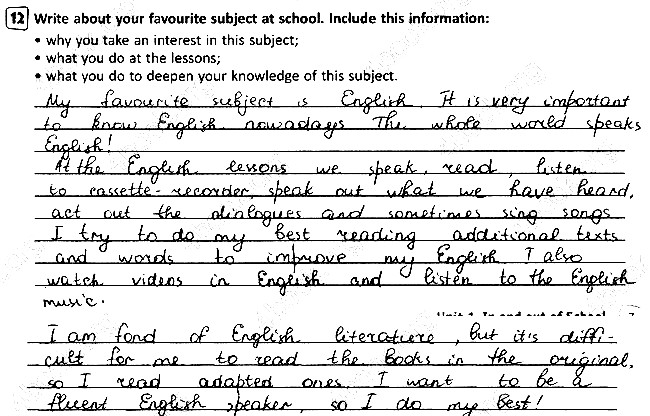 12 Write about your favourite subject at school. Include this information:
• why you take an interest in this subject;
• what you do at the lessons;
• what you do to deepen your knowledge of this subject.
My favourite subject is English. It is very important
to know English nowadays. The whole world speaks
English!
At the English lessons we speak, read, listen
to cassette-recorder, speak out what we have heard,
act out the dialogues and sometimes sing songs
I try to do my best reading additional texts
and words to improve my English I also
watch videos in English and listen to the English
music.
I am fond of English literature, but it's diffi-
cult for me to read the books in the original,
so I read adapted ones. I want to be a
fluent English speaker, so I do my best!